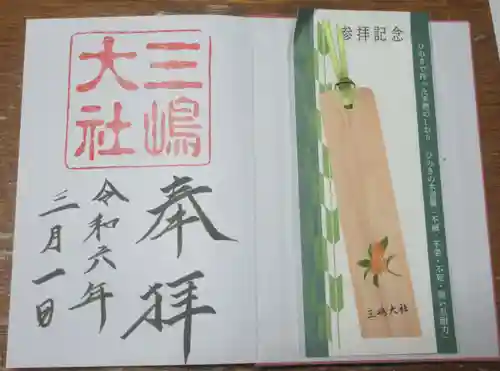 奉拝
三嶋
大社
令和六年
三月一日
参拝記念
三嶋大社